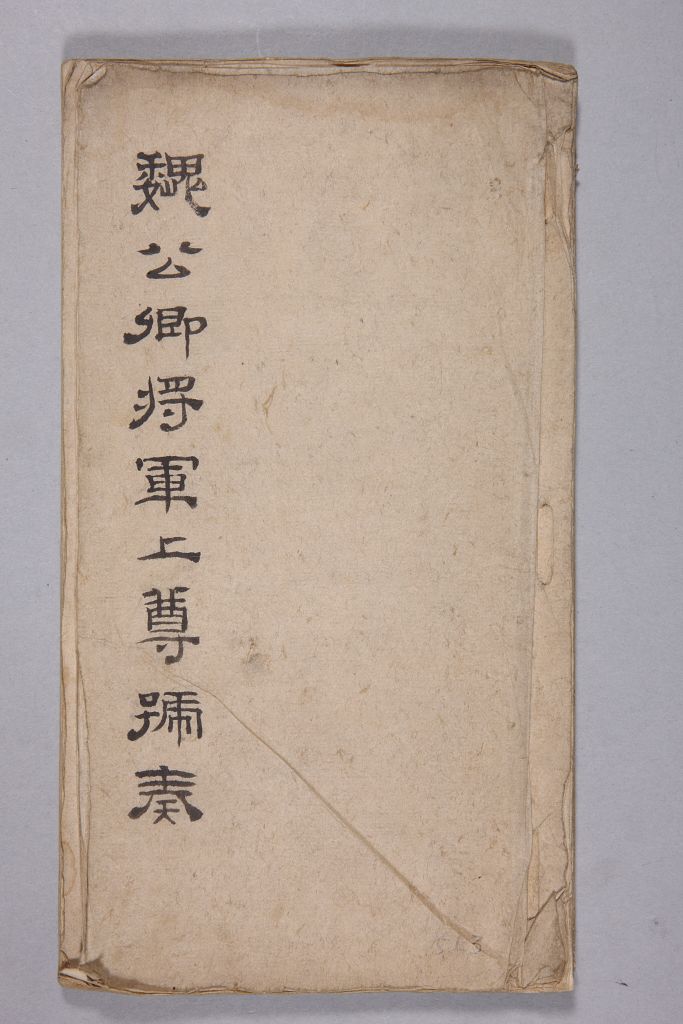 魏公卿將軍上尊號奏